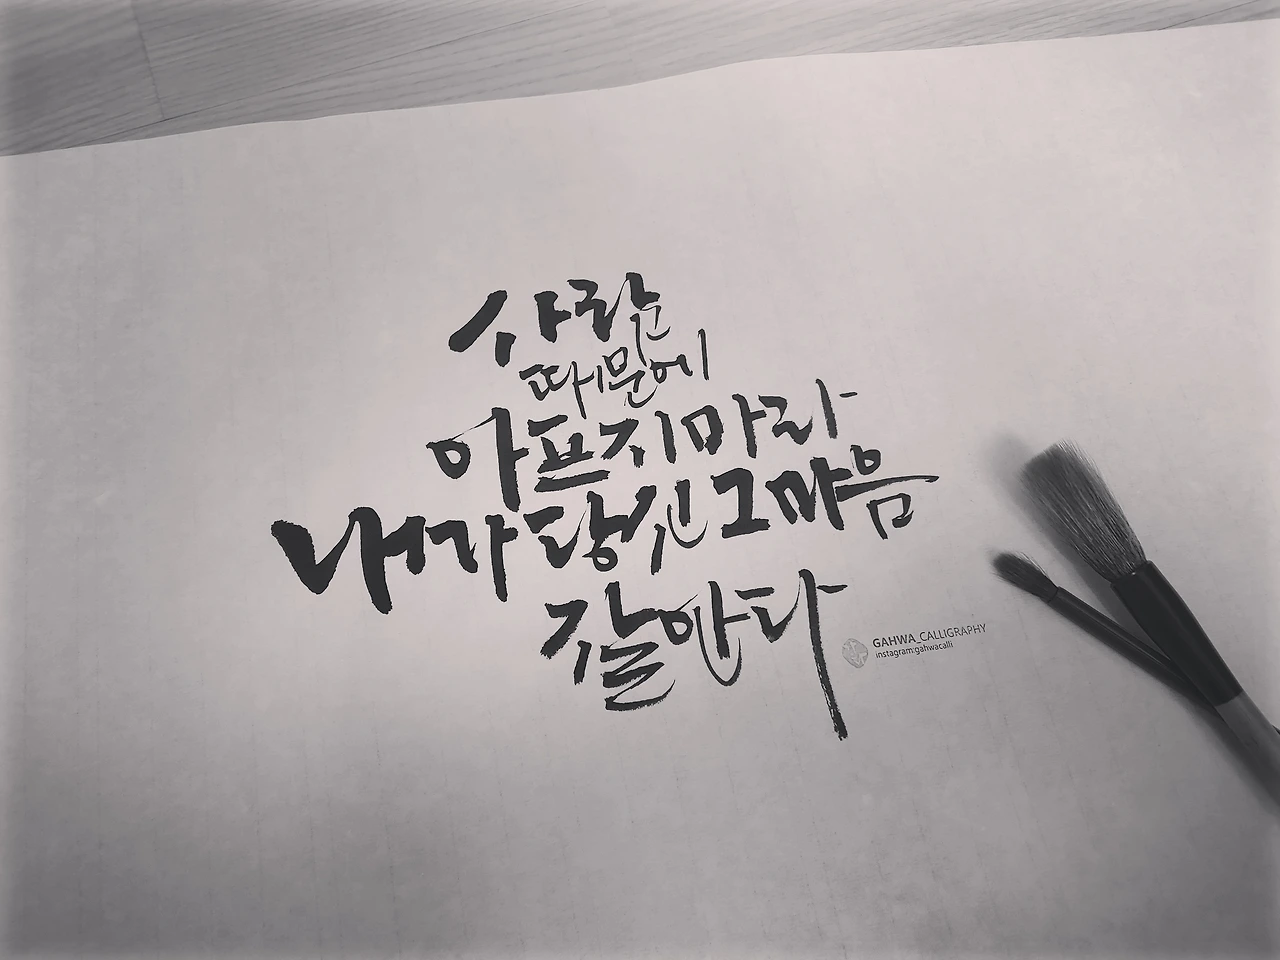 사랑
때문에
아프지마라
내가 당신 그마음
잘안다
GAHWA_CALLIGRAPHY
instagram:gahwacalli